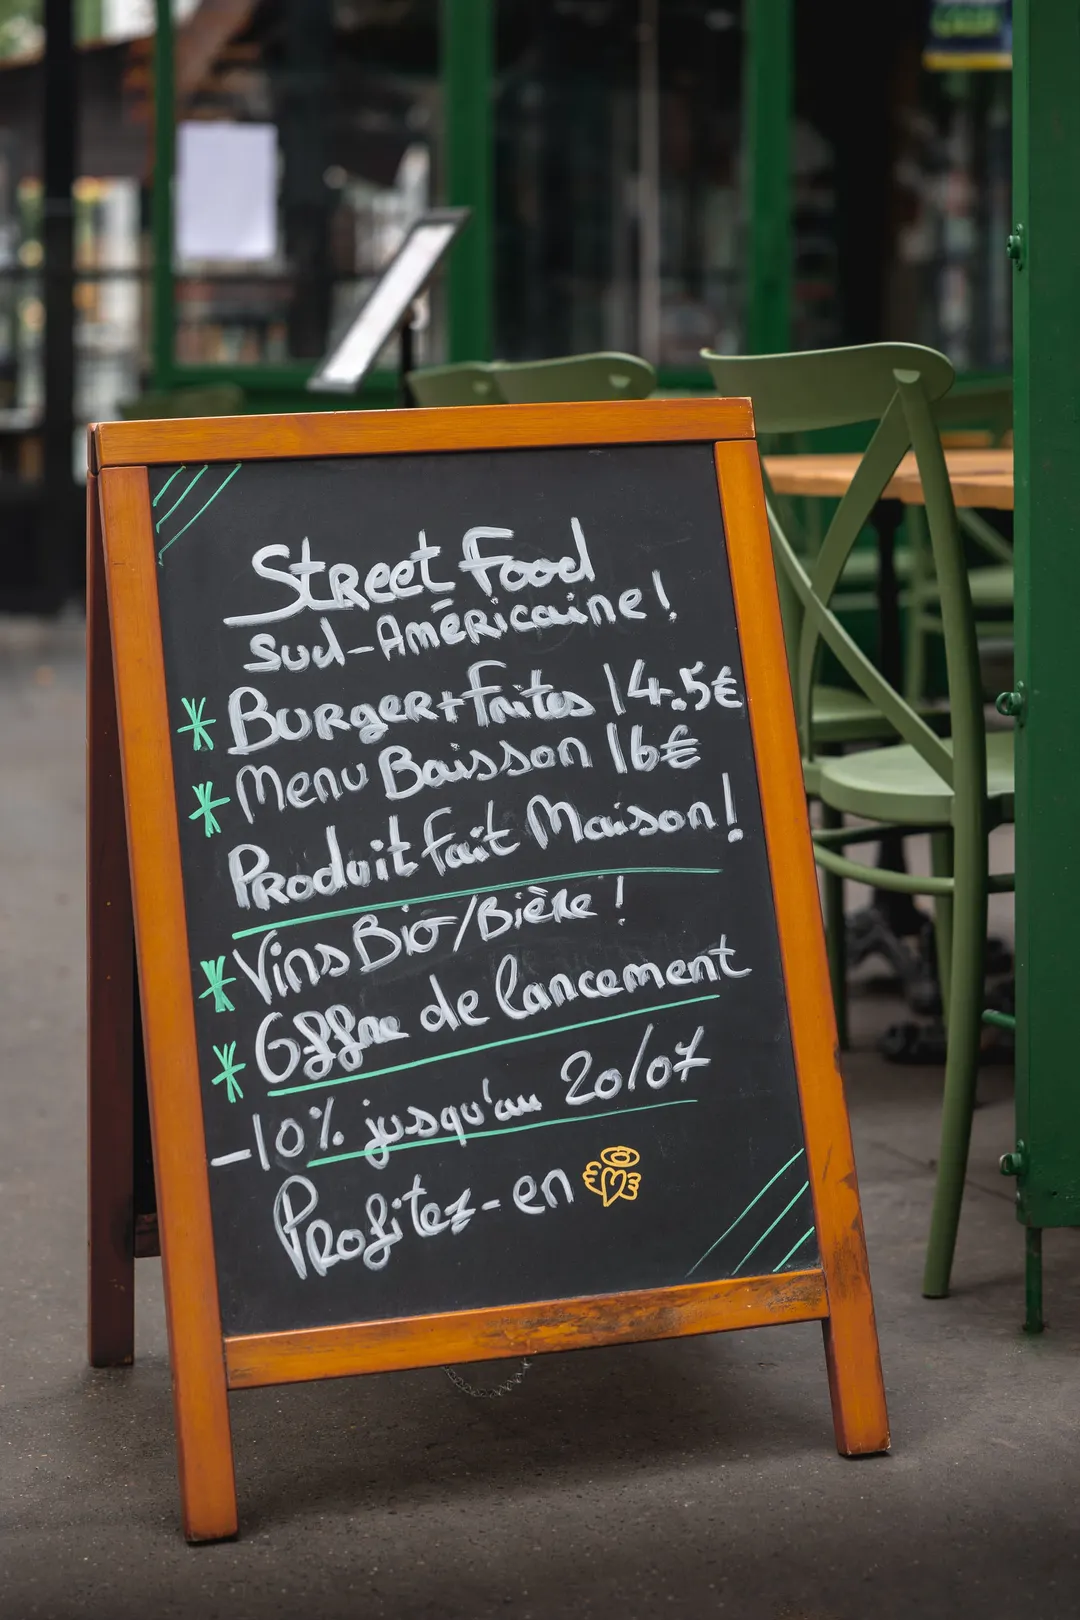 Street Food
Sud-Américaine!
Burger+Frites 14.5€
Menu Boisson 16€
Produit fait Maison!
Vins Bio/Bière!
Offre de lancement
-10% jusqu'au 20/07
Profitez-en